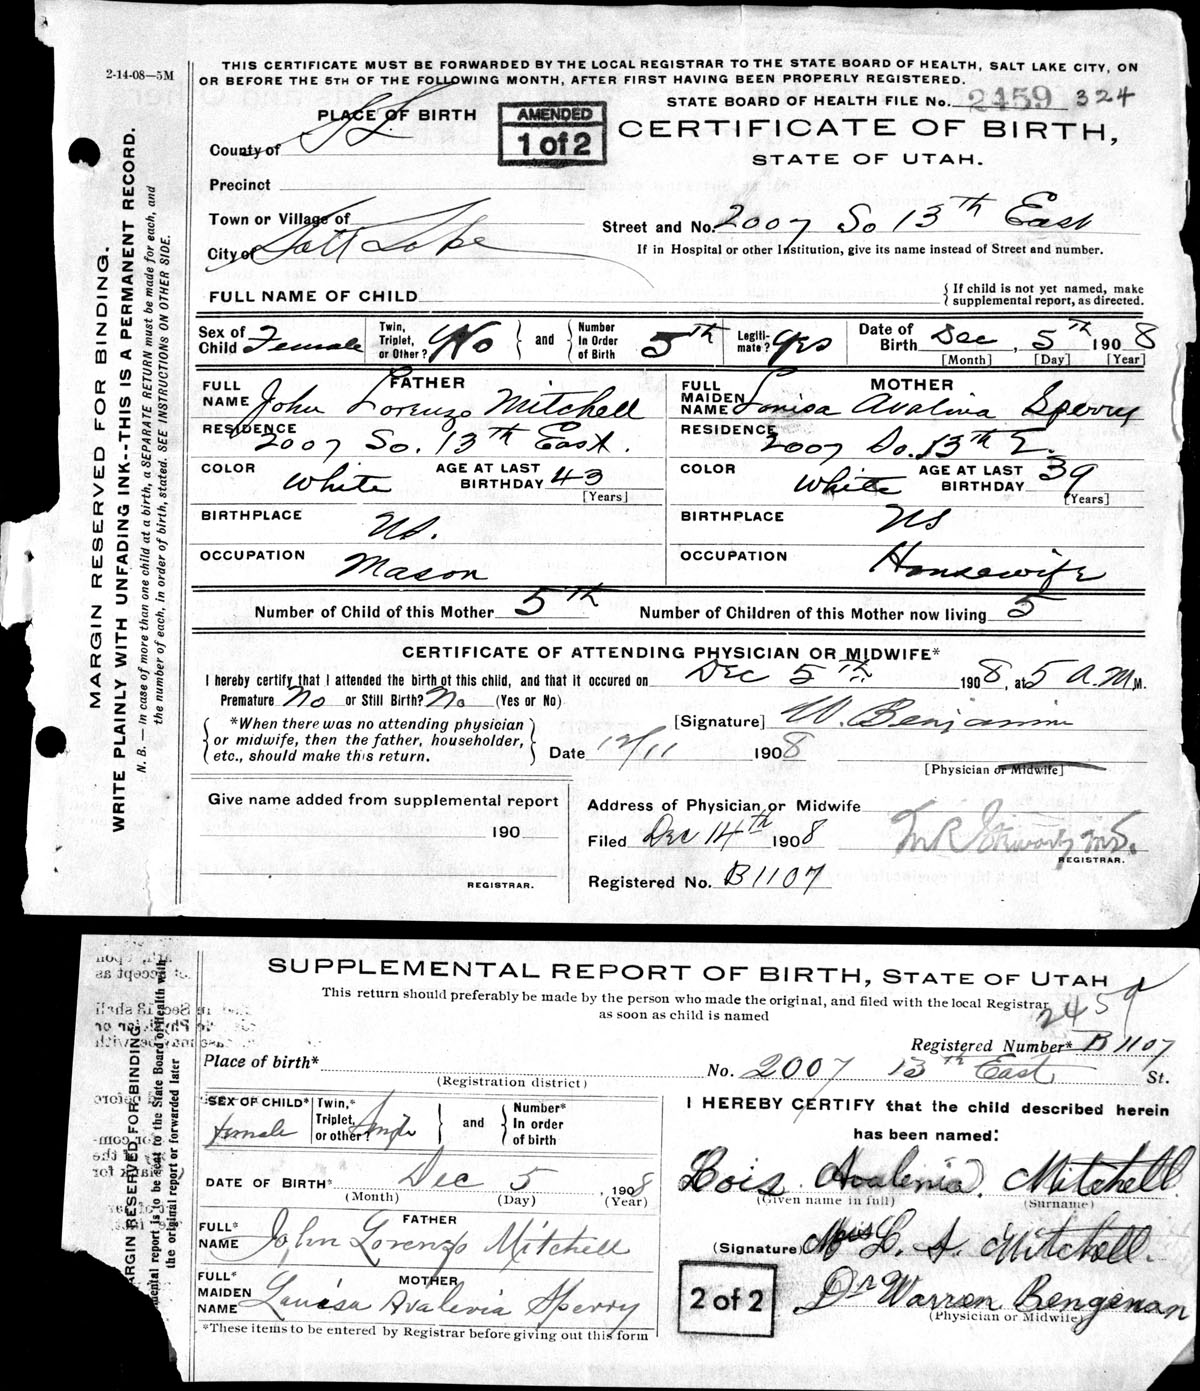 2-14-08—5M
THIS CERTIFICATE MUST BE FORWARDED BY THE LOCAL REGISTRAR TO THE STATE BOARD OF HEALTH, SALT LAKE CITY, ON
OR BEFORE THE 5TH OF THE FOLLOWING MONTH, AFTER FIRST HAVING BEEN PROPERLY REGISTERED.
STATE BOARD OF HEALTH FILE No. 2459 324
PLACE OF BIRTH
AMENDED
1 of 2
CERTIFICATE OF BIRTH,
STATE OF UTAH.
County of S L
Precinct
Town or Village of
City of Salt Lake
Street and No. 2007 So 13th East
If in Hospital or other Institution, give its name instead of Street and number.
FULL NAME OF CHILD
{ If child is not yet named, make
supplemental report, as directed.
Sex of Child Female
Twin, Triplet, or Other? No } and { Number In Order of Birth 5th
Legitimate? Yes
Date of Birth Dec, 5th 1908
[Month] [Day] [Year]
FATHER
FULL NAME John Lorenzo Mitchell
RESIDENCE 2007 So. 13th East.
COLOR White AGE AT LAST BIRTHDAY 43
[Years]
BIRTHPLACE US.
OCCUPATION Mason
MOTHER
FULL MAIDEN NAME Louisa Avalina Sperry
RESIDENCE 2007 So. 13th E.
COLOR White AGE AT LAST BIRTHDAY 39
[Years]
BIRTHPLACE US
OCCUPATION Housewife
Number of Child of this Mother 5th Number of Children of this Mother now living 5
CERTIFICATE OF ATTENDING PHYSICIAN OR MIDWIFE*
I hereby certify that I attended the birth of this child, and that it occured on Dec 5th 1908, at 5 A.M M.
Premature No or Still Birth? No (Yes or No)
{ *When there was no attending physician
or midwife, then the father, householder,
etc., should make this return. }
[Signature] W. Benjamin
Date 12/11 1908
[Physician or Midwife]
Give name added from supplemental report
190
REGISTRAR.
Address of Physician or Midwife
Filed Dec 14th 1908
REGISTRAR.
Registered No. B1107
MARGIN RESERVED FOR BINDING.
WRITE PLAINLY WITH UNFADING INK--THIS IS A PERMANENT RECORD.
N. B. — In case of more than one child at a birth, a SEPARATE RETURN must be made for each, and
the number of each, in order of birth, stated. SEE INSTRUCTIONS ON OTHER SIDE.
SUPPLEMENTAL REPORT OF BIRTH, STATE OF UTAH
This return should preferably be made by the person who made the original, and filed with the local Registrar
as soon as child is named
2459
Registered Number* B1107
Place of birth*
(Registration district)
No. 2007 13th East St.
SEX OF CHILD* female
Twin,* Triplet, or other? Single } and { Number* In order of birth
DATE OF BIRTH* Dec 5, 1908
(Month) (Day) (Year)
FATHER
FULL* NAME John Lorenzo Mitchell
MOTHER
FULL* MAIDEN NAME Louisa Avalenia Sperry
*These items to be entered by Registrar before giving out this form
I HEREBY CERTIFY that the child described herein
has been named:
Lois Avalenia. Mitchell.
(Given name in full) (Surname)
(Signature) Mrs L. A. Mitchell.
2 of 2
Dr Warren Bengeman
(Physician or Midwife)
MARGIN RESERVED FOR BINDING
report is to be sent to the State Board of Health with
the original report or forwarded later